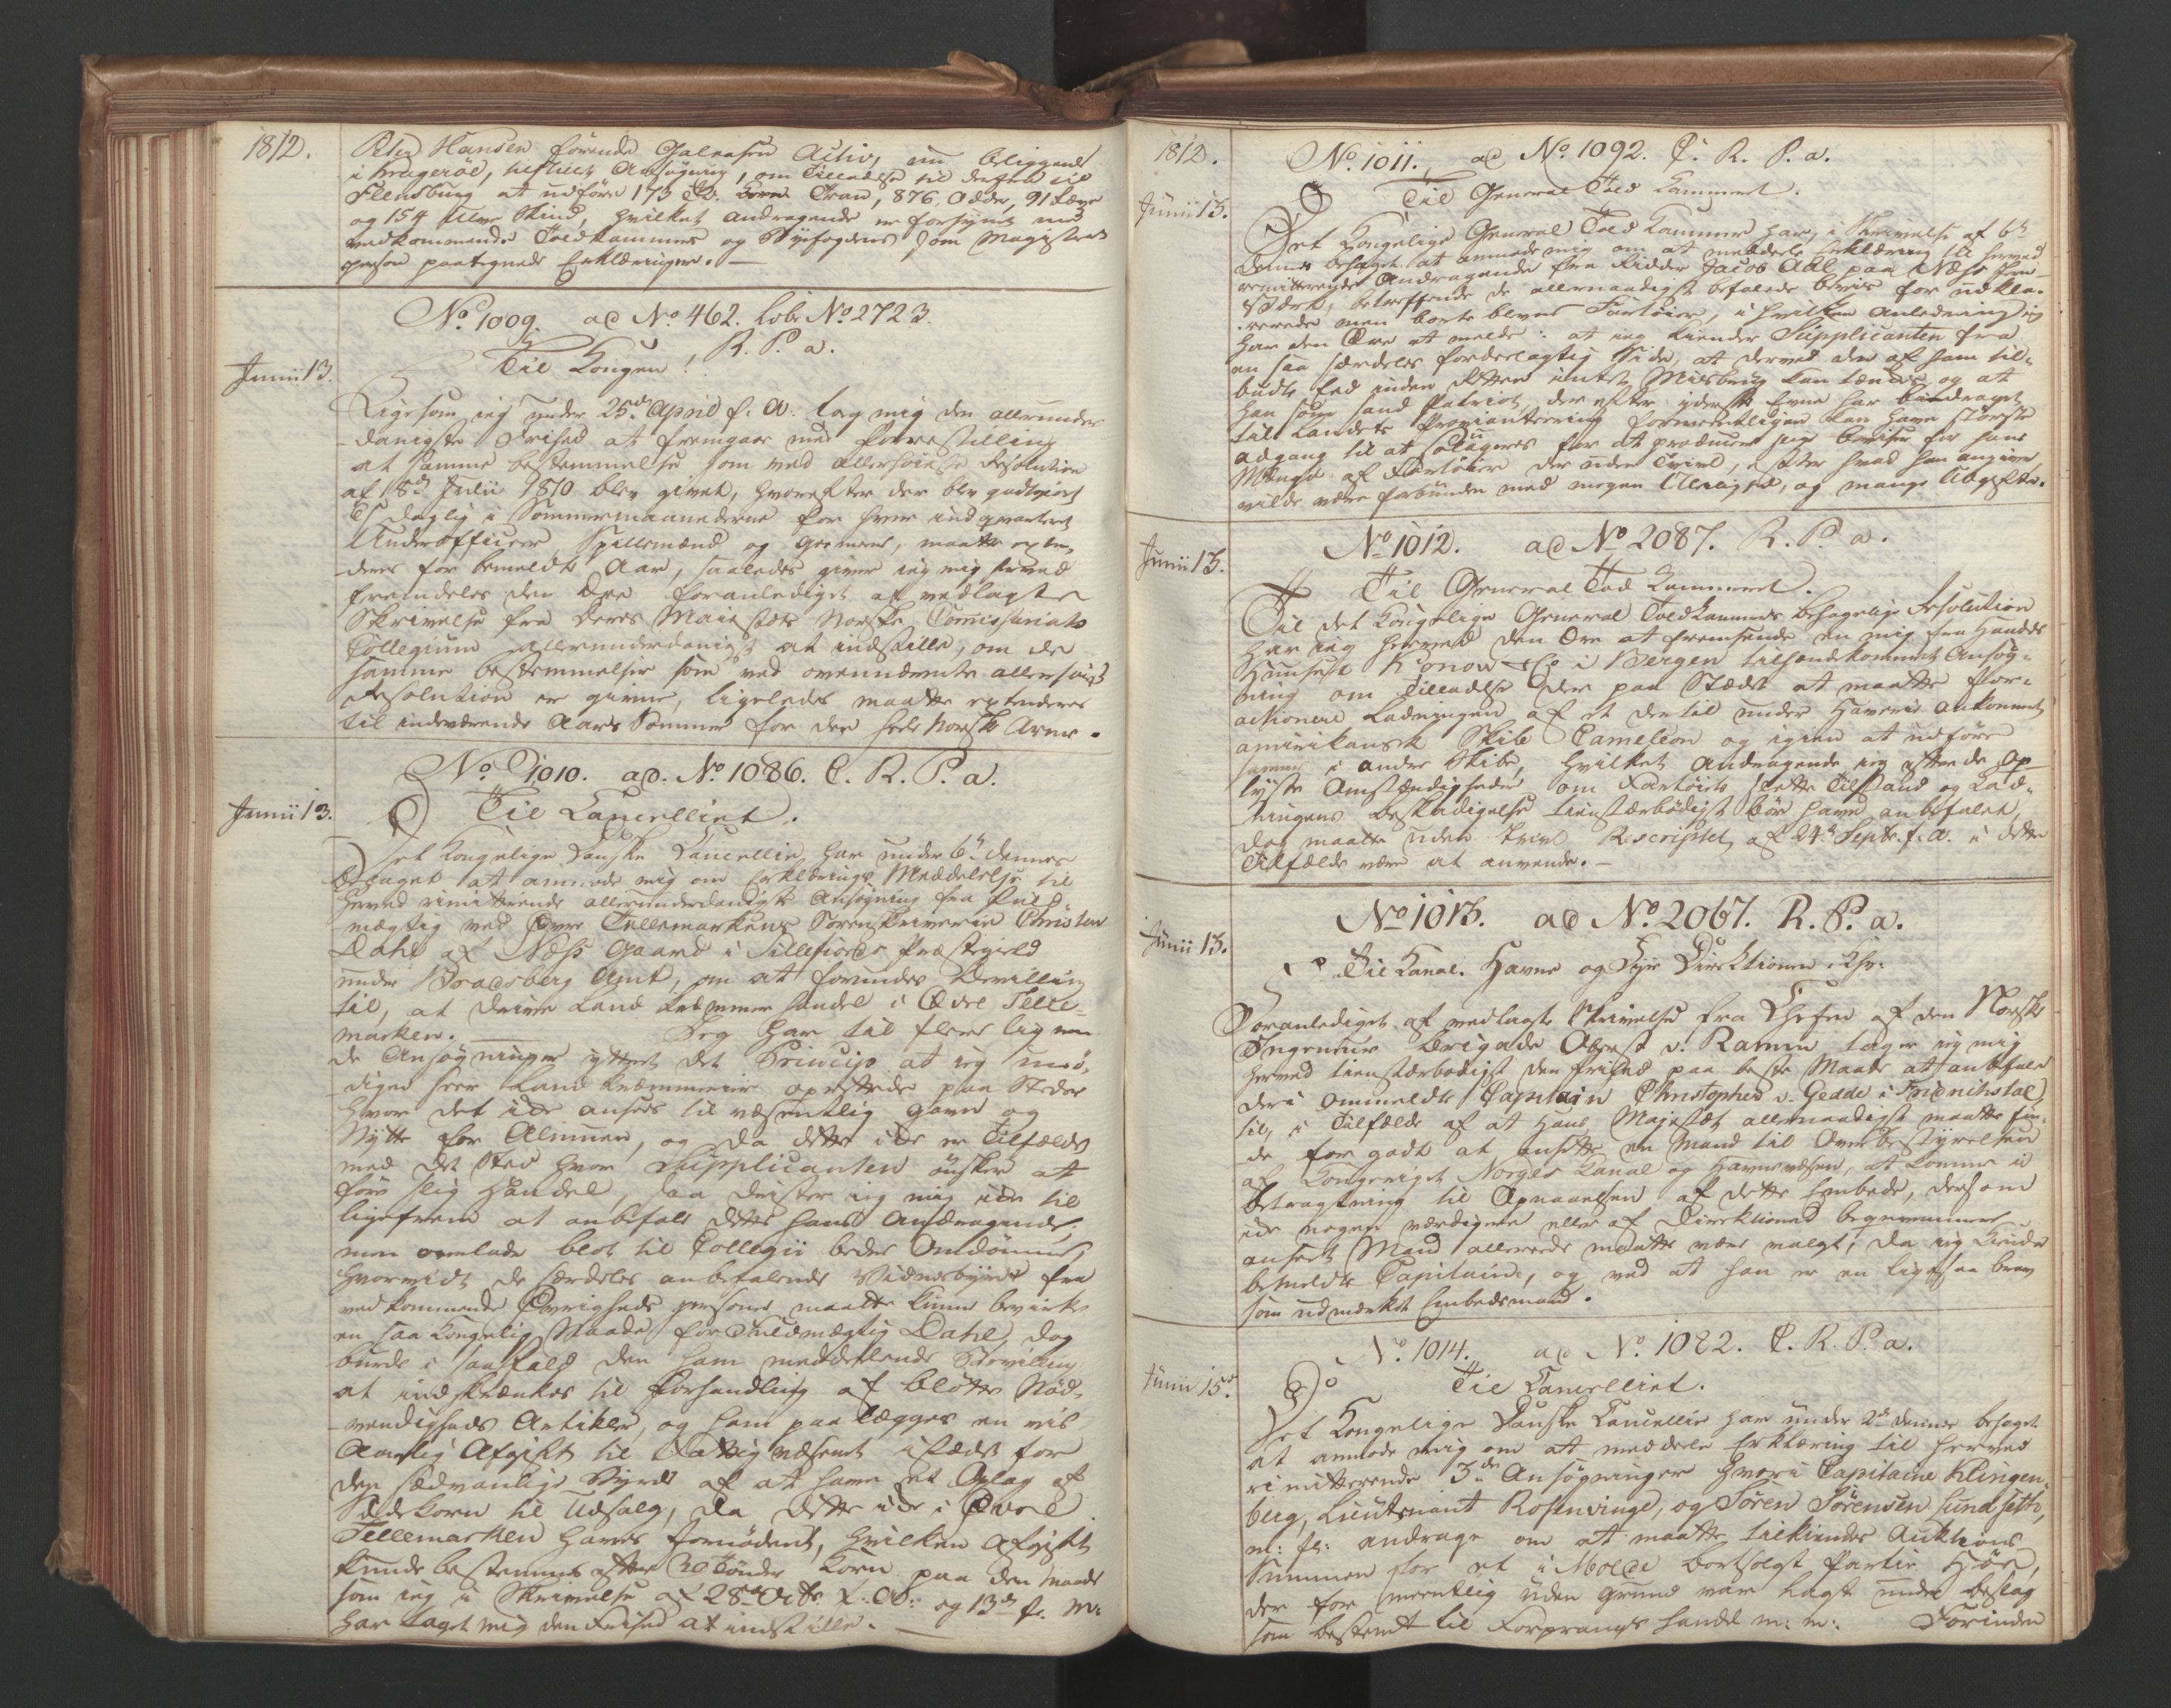 1812.
Peder Hansen förende Galeasen Activ, nu beliggende
i Kragerøe, hertillagt Ansøgning, om Tilladelse til derfra til
Flensburg at udføre 173 Td. Tran, 876 Odder, 91 Ræve
og 154 Ulve Skind, hvilket Andragende er forsynet med
vedkommende Toldkammer og Byefogdens som Magistrats
person paategnede Erklæringer. —
No 1009. ad No 462. Lobe No 2723.
R. P. a.
Til Kongen!
Junii 13.
Ligesom jeg under 25de April f. A. tog mig den allerunder
danigste Frihed at fremgaae med Forestilling
at samme bestemmelse som ved allerhøieste Resolution
af 18de Julii 1810 blev givet, hvorefter der blev godtgiort
6 s daglig i Sommermaanederne for hver indqvarteret
Underofficeer, Spillemænd og Gemeene, maatte exten-
deres for bemeldte Aar, saaledes giver jeg mig herved
fremdeles den Ære foranlediget af vedlagte
Skrivelse fra Deres Majestæts Norske Comissariats
Collegium allerunderdanigst at indstille, om de
samme bestemmelser som ved ovennævnte allerhøieste
Resolution er givne, ligeledes maatte extenderes
til indeværende Aars Sommer for den hele Norske Armee.
No 1010. ad. No 1086. C. R. P. a.
Til Cancelliet.
Junii 13.
Det Kongelige Danske Cancellie har under 6te dennes
behaget at anmode mig om Erklærings Meddelelse til
herved remitterende allerunderdanigste Ansøgning fra Fuld-
mægtig ved Øvre Tellemarkens Sorenskriverie Christen
Dahl af Næss Gaard i Sillejords Præstegield
under Bradsberg Amt, om at forundes Bevilling
til, at drive Land Kræmmerhandel i Øvre Telle-
marken. Jeg har til flere lignen
de Ansøgninger yttret det Princip at jeg nød-
digen seer Land Kræmmerier oprettede paa Steder
hvor det ikke ansees til væsentlig Gavn og
Nytte for Almuen, og da dette ikke er Tilfældet
med det Sted hvor Supplicanten ønsker at
føre slig Handel, saa drister jeg mig ikke til
ligefrem at anbefale dette hans Andragende,
men overlade blot til Collegii bedre Omdømme,
hvorvidt de særdeles anbefalende Vidnesbyrd fra
vedkommende Øvrigheds personer maatte kunne bevirke
en saa Kongelig Naade for Fuldmægtig Dahl, dog
burde i saafald den ham meddelende Bevilling
at indskrænkes til Forhandling af blotte Nød-
vendigheds Artikler, og ham paalægges en vis
Aarlig Afgift til Fattigvæsenet istedet for
den sædvanlige Byrde af at have et Oplag af
Sædekorn til Udsalg, da dette ikke i Øvre
Tellemarken haves fornødent, hvilken Afgift
kunde bestemmes efter 20 Tønder Korn paa den Maade
som jeg i Skrivelse af 28de Octbr. f. A. og 13de f. M.
har taget mig den Frihed at indstille. —
1812.
No 1011. ad No 1092. C. R. P. a.
Til General Told Kammeret.
Junii 13.
Det Kongelige General Told Kammer har, i Skrivelse af 6te
dennes behaget at anmode mig om at meddele Erklæring til herved
remitterende Andragende fra Ridder Jacob Aall paa Næss Jern
Værk, betreffende de allernaadigst befalede beviis for udkla-
rerede men borteblevne Fartøier, i hvilken Anledning jeg
har den Ære at melde: at jeg kiender Supplicanten fra
en saa særdeles fordeelagtig Side, at derved den af ham til-
budte Eed inden Retten intet Misbrug kan tænkes og at
han som sand Patriot, der efter yderste Evne har bidraget
til Landets Provianteering formeentligen kan have største
adgang til at fritages for at producere sine beviser for hans
Mængde af Fartøier der uden Tvivl, efter hvad han angiver
vilde være forbunden med megen Uleilighed, og mange Udgifter.
No 1012. ad No 2087. R. P. a.
Til General Told Kammeret.
Junii 13.
Til det Kongelige General Toldkammers behagelige Resolution
har jeg herved den Ære at fremsende en mig fra Handels
Huuset Konow & Co i Bergen tilhaandekommet Ansøg-
ning om Tilladelse der paa Stedet at maatte for-
actionere Ladningen af et dertil under Haverie ankommet
amerikansk Skib Cameleon og igien at udføre
samme i andre Skibe, hvilket Andragende jeg efter de op-
lyste Omstændigheder om Fartøiets slette Tilstand og Lad-
ningens Beskadigelse tienstærbødigst bør have anbefalet,
dog maatte uden tvivl Rescriptet af 24de Septr. f. A. i dette
Tilfælde være at anvende. —
No 1013. ad No 2067. R. P. a.
Til Kanal. Havne og Fyr Direktionen i Khv.
Junii 13.
Foranlediget af vedlagte Skrivelse fra Chefen af den Norske
Ingenieur Brigade Oberst v. Ramm tager jeg mig
herved tienstærbødigst den Frihed paa beste Maade at anbefale
den i ommeldte Capitain Christopher v. Gedde i Friderichstal
til, i Tilfælde af at Hans Majestæt allernaadigst maatte fin-
de for godt at ansætte en Mand til Overbestyrelsen
af Kongeriget Norges Kanal og Havnevæsen, at komme i
betragtning til Opnaaelsen af dette Embede, dersom
ikke nogen værdigere eller af Direktionen beqvemmere
anseet Mand allerede maatte være valgt, da jeg kiender
bemeldte Capitaine, og ved at han er en ligesaa brav
som udmærket Embedsmand.
No 1014. ad No 1082. C. R. P. a.
Til Cancelliet.
Junii 15de.
Det Kongelige Danske Cancellie har under 2de dennes behaget
at anmode mig om at meddele Erklæring til herved
remitterende 3de Ansøgninger hvori Capitaine Klingen-
berg, Lieutenant Rosenvinge, og Søren Sørensen Lundsette,
m: fl: andrage om at maatte tilkiendes Auktions
Summen for et i Molde bortsolgt Partie Høe,
der formeentlig uden Grund var lagt under beslag
som bestemt til Forprangs handel m: m: Forinden